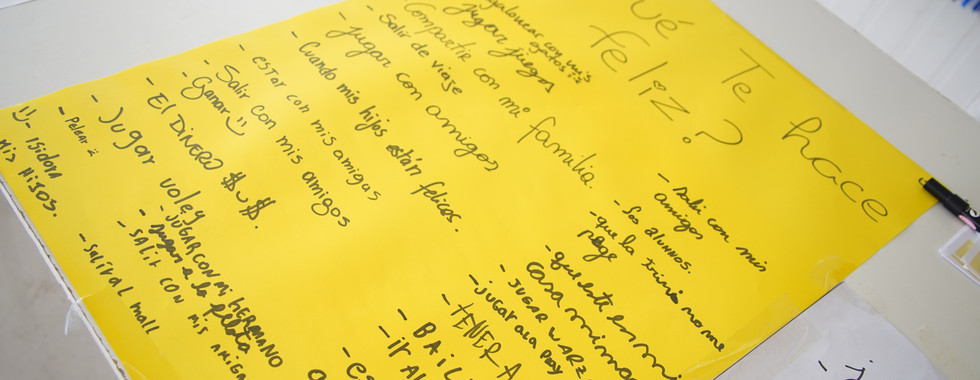 ué Te hace
feliz?
jugar juegos
Compartir con mi familia.
- Salir de viaje
- jugar con amigos
- Cuando mis hijos están felices.
- estar con mis amigas
- Salir con mis amigos
- Ganar
- El DINERO $ $.
- Jugar voley
- Pelear
- Isidora
Mis Hijos.
- JUGAR CON mi HERMANO
jugar a la pelota
- SALIR CON MIS AMIG
- Salir al mall
- Salir con mis
amigos
- los alumnos.
- que la Trini no me
pege
- que este en mi
casa
- JUGAR WARZ
- JUGAR a la play
- TENER A
- BAIL
- ir Al